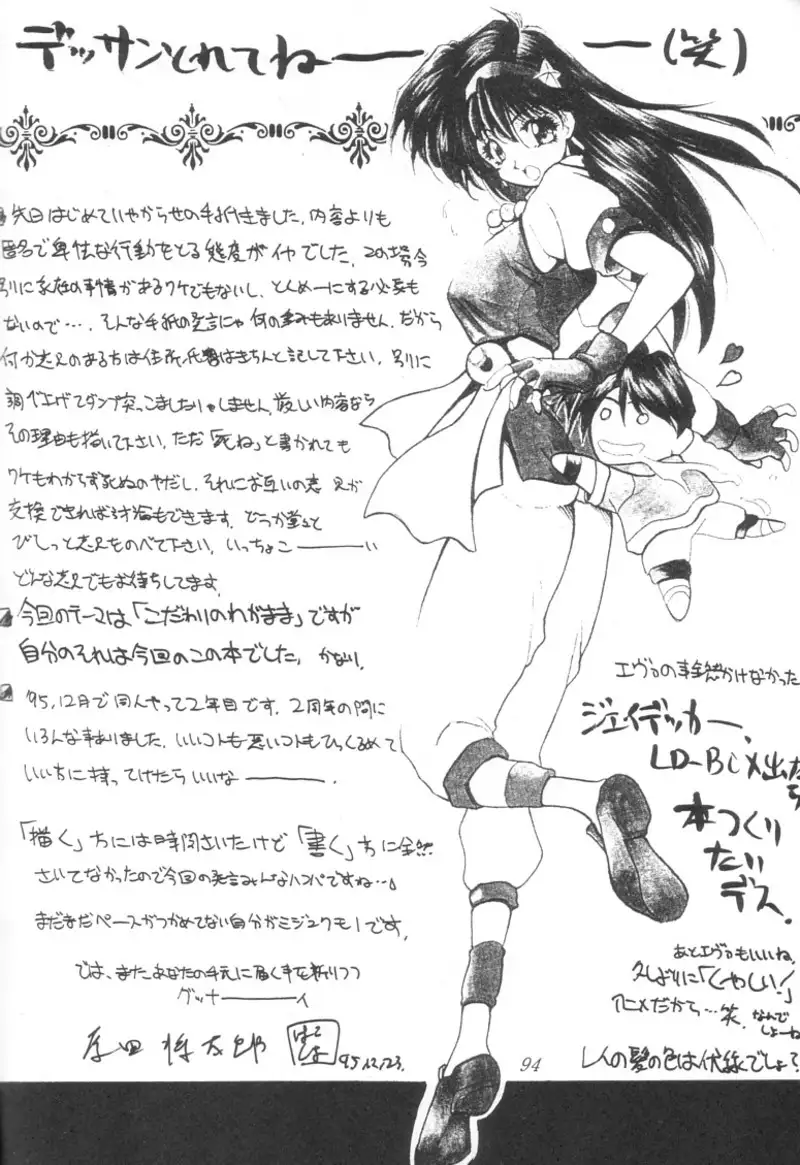 デッサンとれてねーー(笑)
先日はじめていやがらせの手紙きました。内容よりも
匿名で卑怯な行動をとる態度がイヤでした。この場合
別に家在の事情があるワケでもないし、とくめーにする必要も
ないので…。そんな手紙の発言にゃ何の重みもありません。だから
何か意見のある方は住所、氏名はきちんと記して下さい。別に
調べ上げてダンプ突っこましたりゃしません。厳しい内容なら
その理由も描いて下さい。ただ「死ね」と書かれても
ワケもわからず死ぬのやだし、それにお互いの意見が
交換できれば
びしっと意見をのべて下さい。いっちょこーーい
どんな意見でもお待ちしてます。
今回のテーマは「こだわりのわがまま」ですが
自分のそれは今回のこの本でした。かなり。
'95,12月で同人やって2年目です。2周年の間に
いろんな事ありました。いいコトも悪いコトもひっくるめて
いい方に持ってけたらいいなーー。
「描く」方には時間さいたけど「書く」方に全然
さいてなかったので今回の発言みんなハンパですね…。
まだまだペースがつかめてない自分がミジュクモノです。
では、また、あなたの手元に届く事を祈りつつ
グッナーーイ
'95,12,23.
エヴァの事全然かけなかった
ジェイデッカー、
LD-BOX出たら
本つくり
たい
デス。
あとエヴァもいいね。
久しぶりに「くやしい!」
アニメだから…笑。なんで
しょーね
レイの髪の色は伏線でしょ?
94